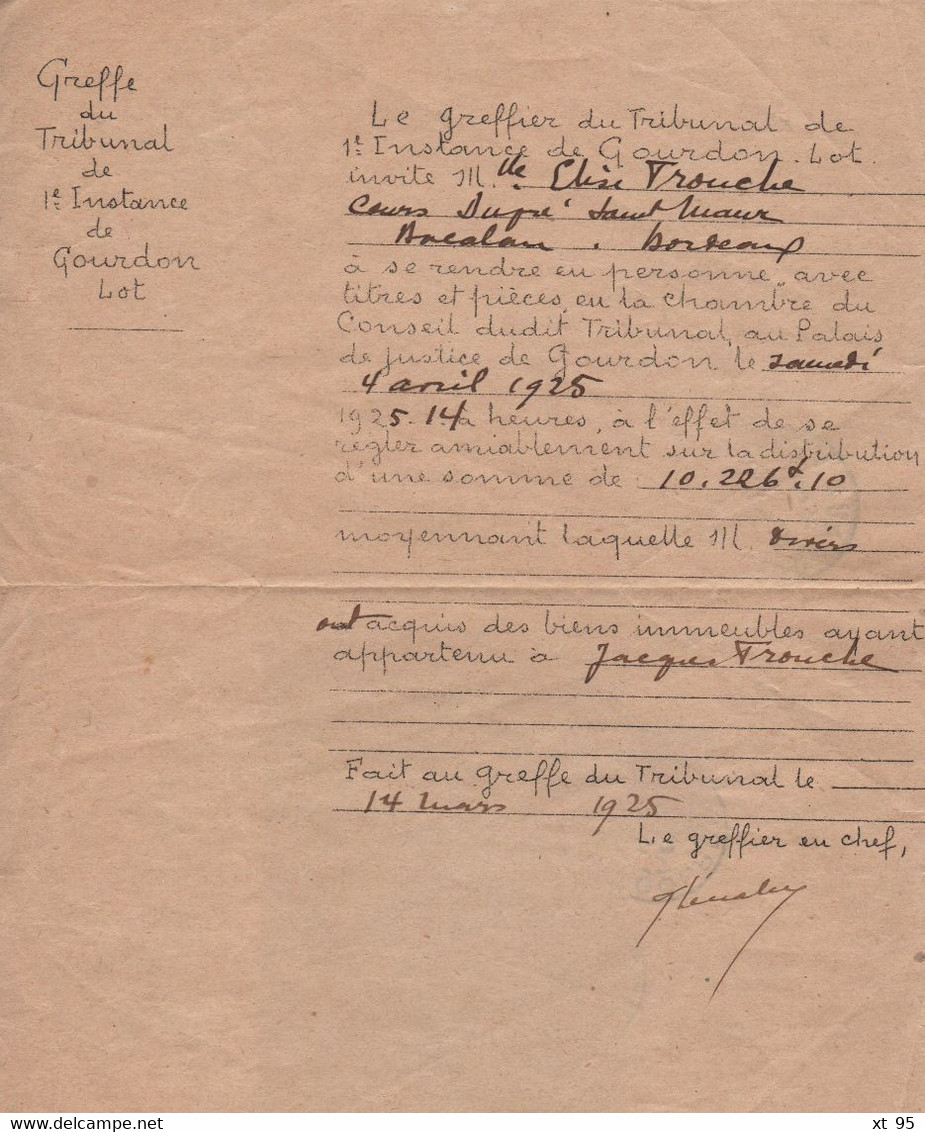 Greffe
du
Tribunal
de
1e Instance
de
Gourdon
Lot
Le greffier du Tribunal de
1e Instance de Gourdon. Lot.
invite Mlle Elise Trouche
Cours Dupré Saint Maur
Bacalan . Bordeaux
à se rendre en personne, avec
titres et pièces, en la chambre du
Conseil dudit Tribunal, au Palais
de justice de Gourdon, le samedi
4 avril 1925
1925. 14 à heures, à l'effet de se
régler amiablement sur la distribution
d'une somme de 10.226f.10
moyennant laquelle M. divers
ont acquis des biens immeubles ayant
appartenu à Jacques Trouche
Fait au greffe du Tribunal le
14 mars 1925
Le greffier en chef,
www.delcampe.net
xt 95